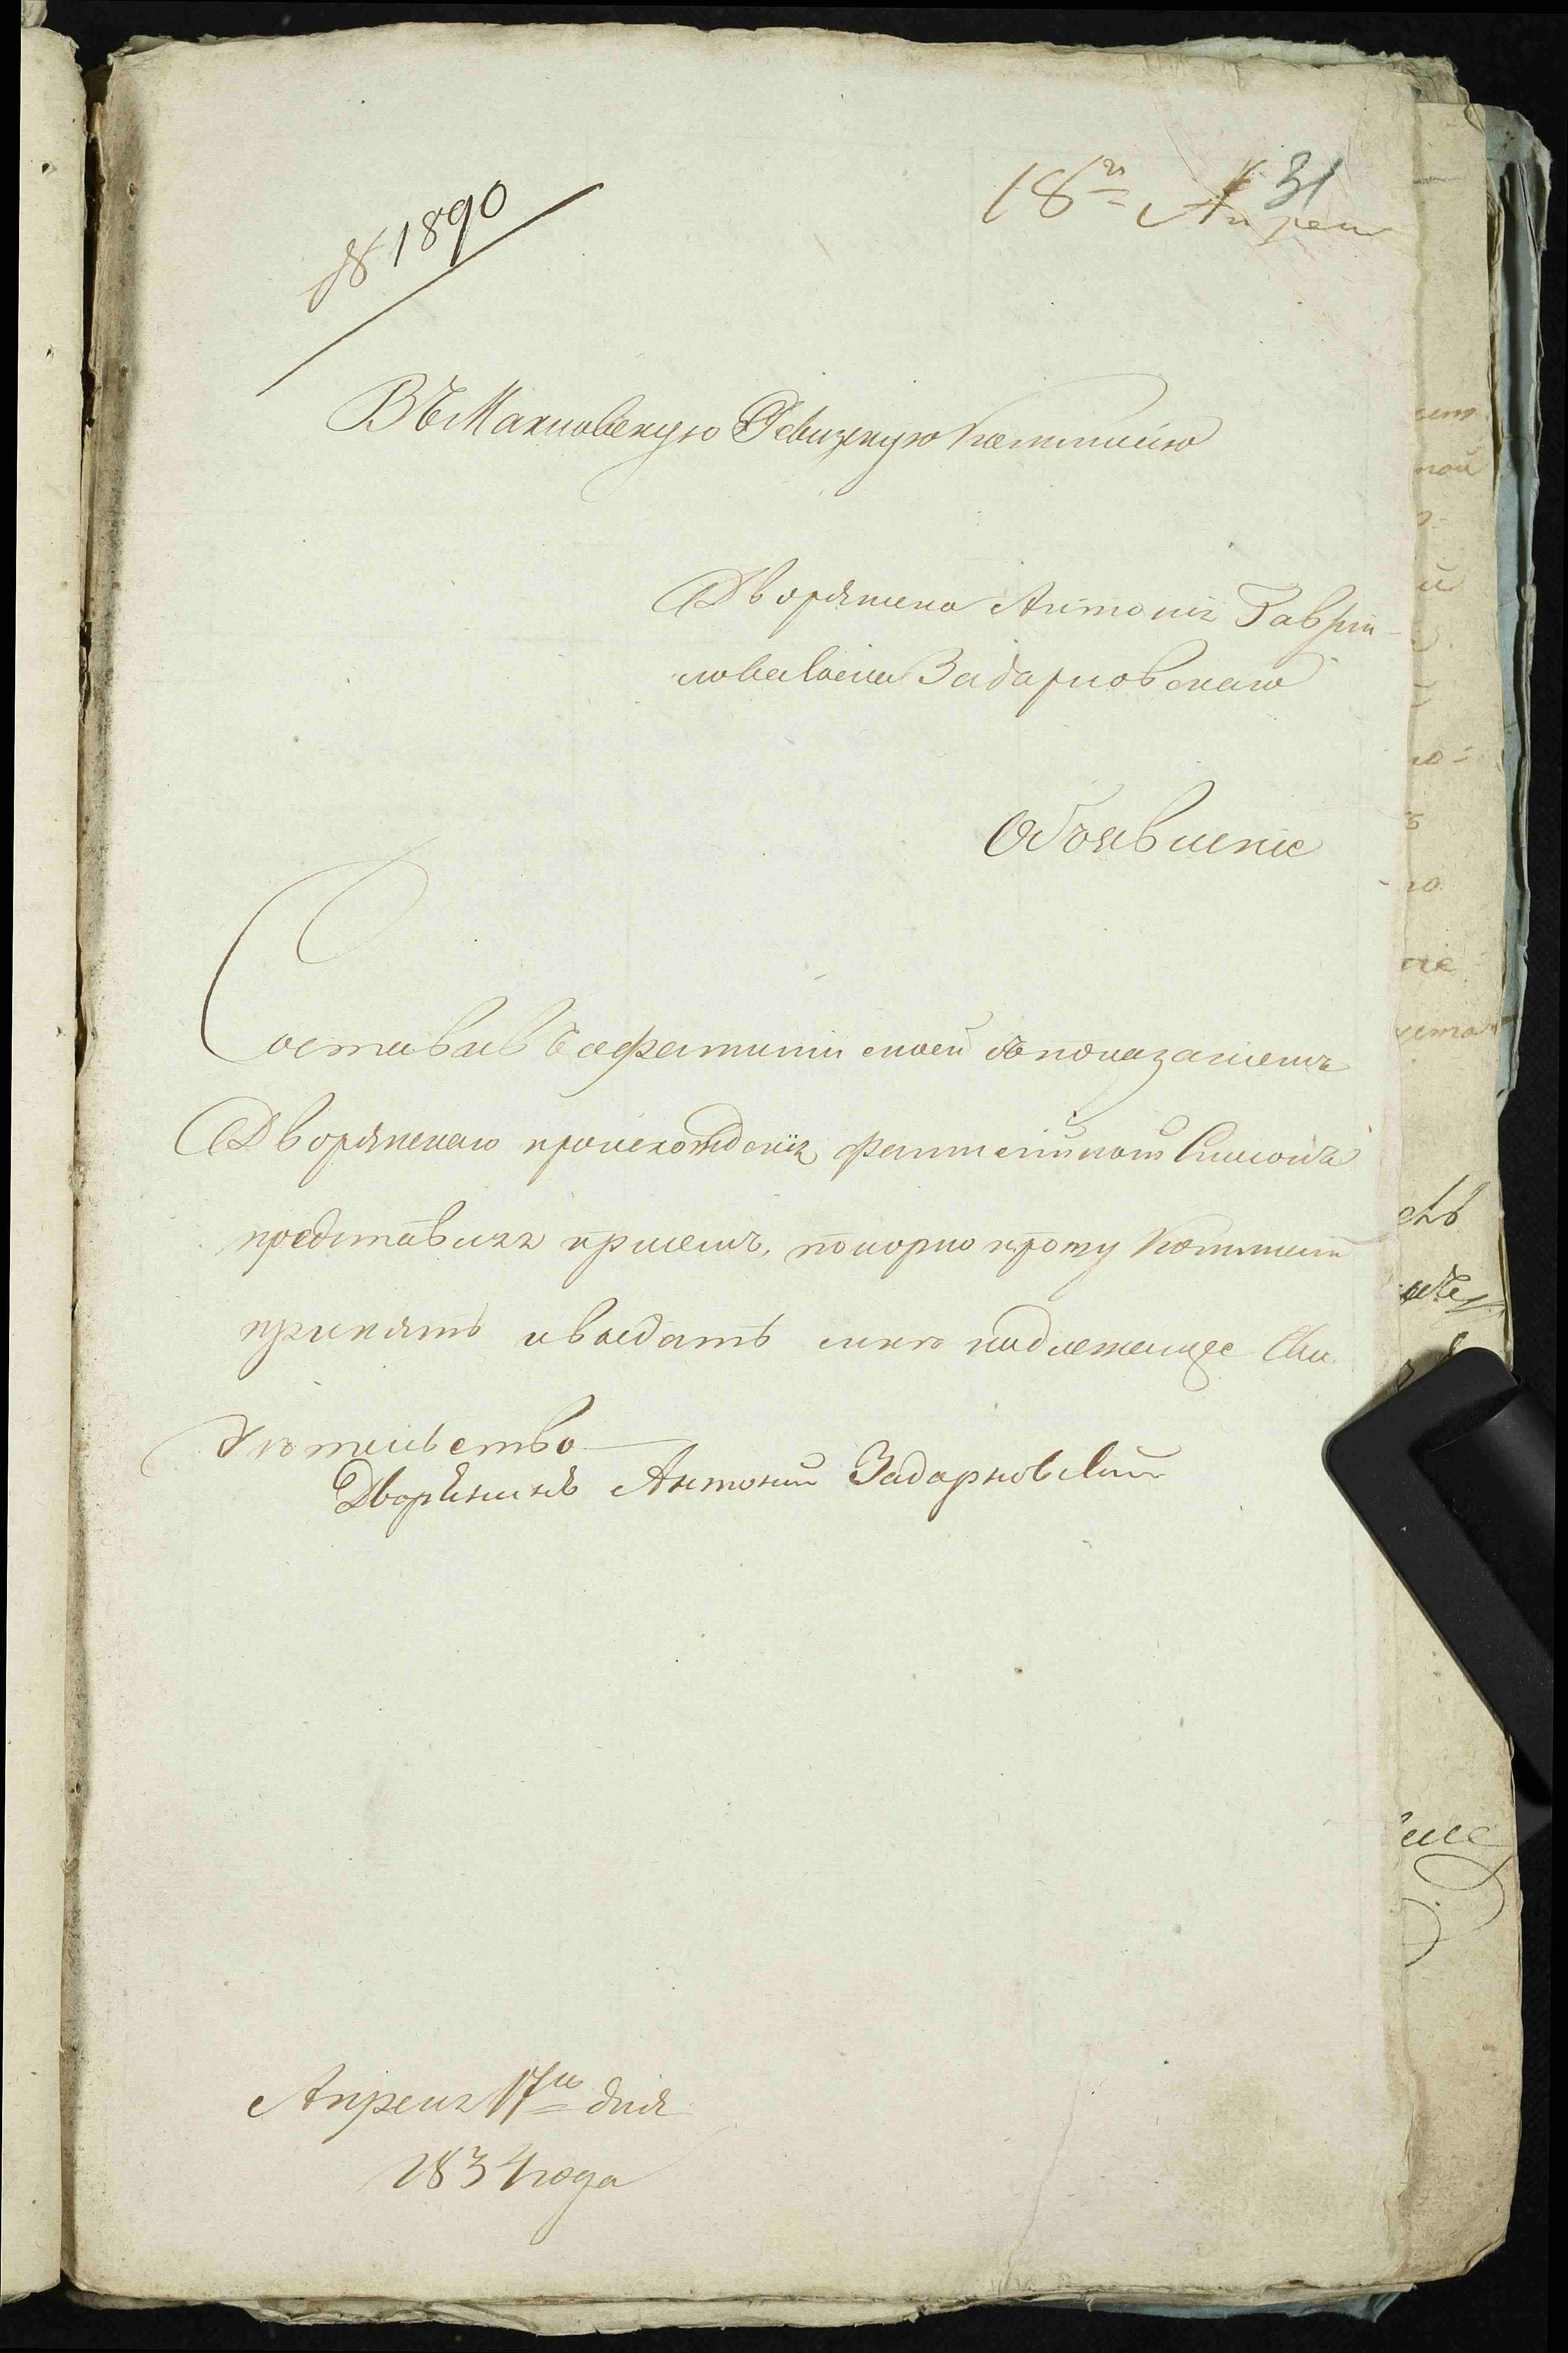 31
18го Апреля
№ 1890
Въ Махновскую Ревизскую Коммисiю
Дворянина Антонiя Гаври-
лова сына Задарновскаго
Объявленiе
Составивъ о фамилiи моей съ показанiемъ
Дворянскаго происхожденiя фамилiйной Списокъ
представляя при семъ, покорно прошу Коммисiи
принять и выдать мнѣ надлежащее Сви
дѣтельство
Дворянинъ Антонiй Задарновскiй
Апреля 17го дня
1834 года